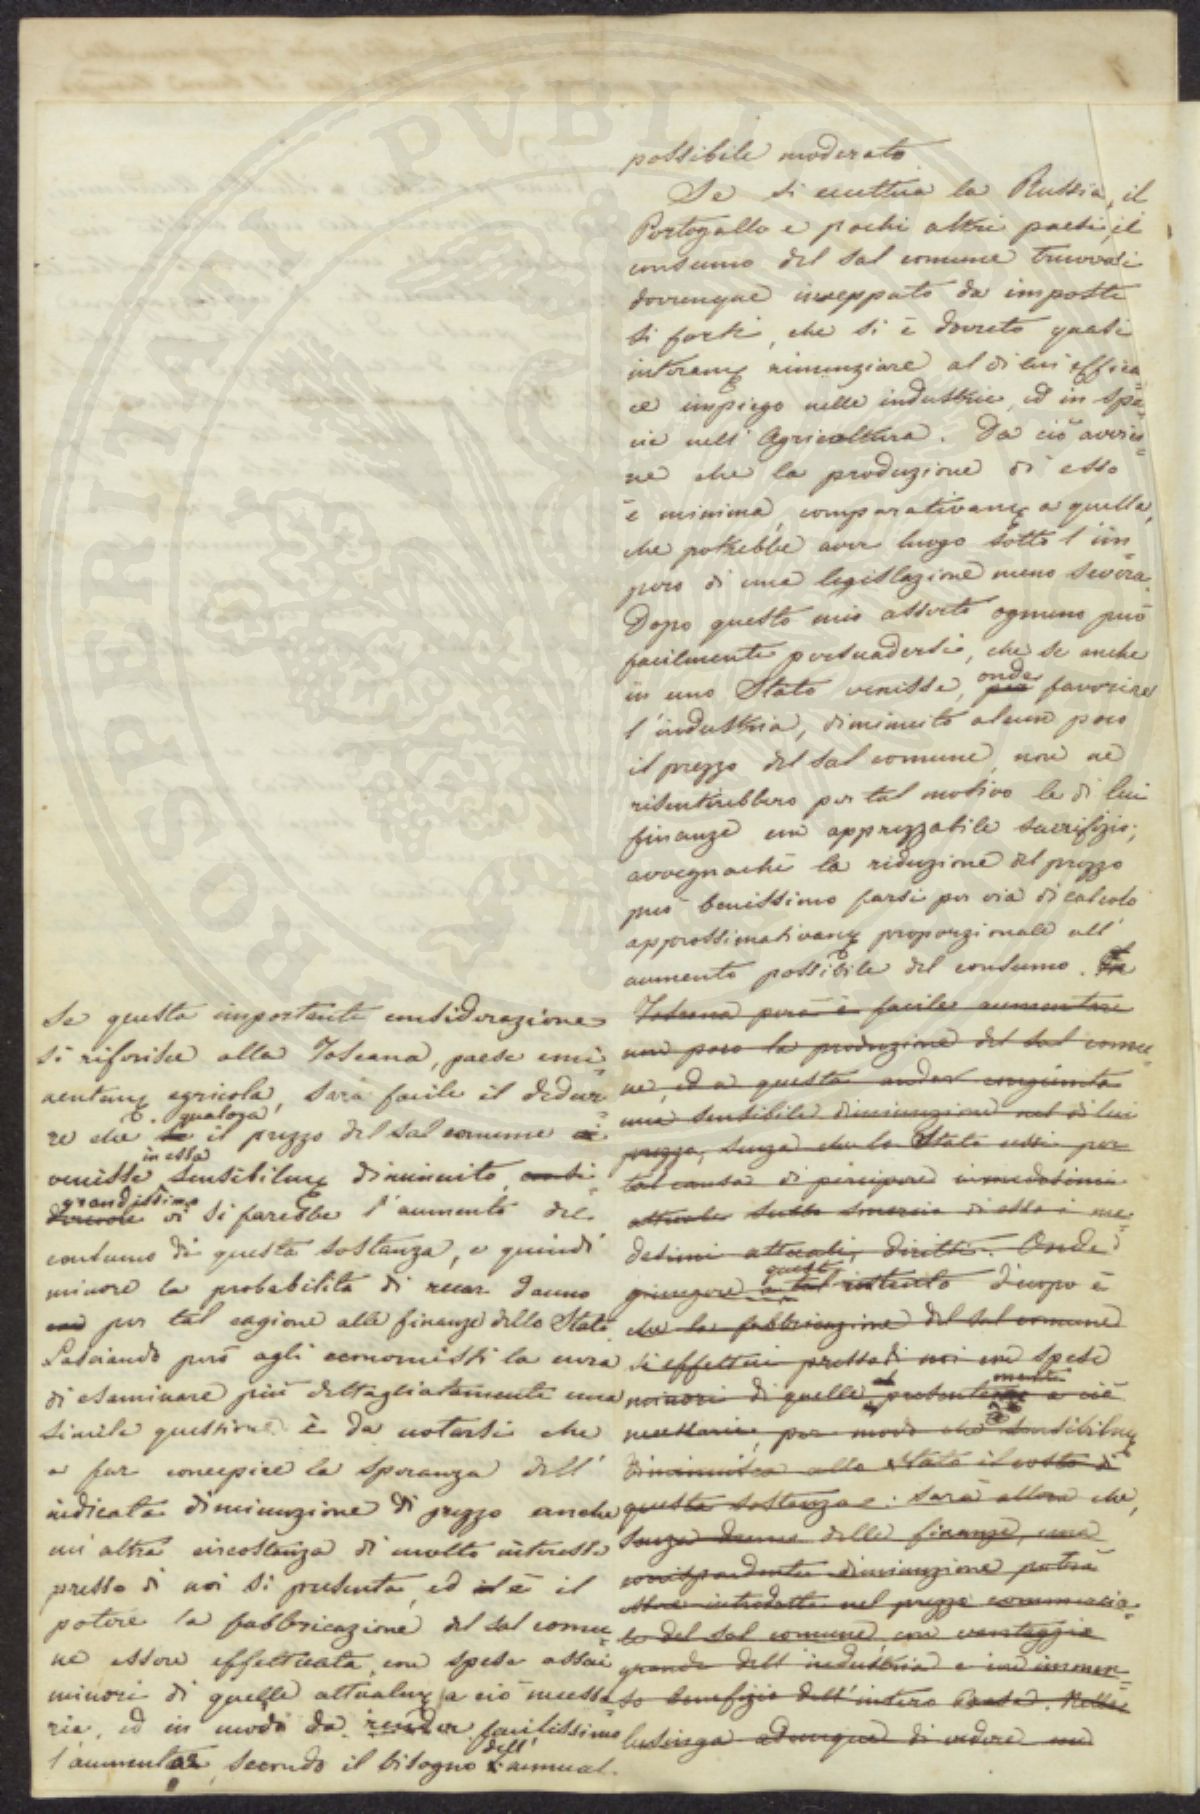 possibile moderato
Se si eccettua la Russia, il
Portogallo e pochi altri paesi, il
consumo del sal comune trovasi
dovunque inceppato da imposte
sì forti, che si è dovuto quasi
interam͡e rinunziare al di lui effica=
ce impiego nelle industrie, ed in spe=
cie nell'Agricoltura. Da ciò avvie=
ne che la produzione di esso
è minima, comparativam͡e a quella,
che potrebbe aver luogo sotto l'im=
pero di una legislazione meno severa.
Dopo questo mio asserto ognuno può
facilmente persuadersi, che se anche
in uno Stato venisse, onde per favorire
l'industria, diminuito alcun poco
il prezzo del sal comune, non ne
risentirebbero per tal motivo le di lui
finanze un apprezzabile sacrifizio;
avvegnachè la riduzione del prezzo
può benissimo farsi per via di calcolo
approssimativam͡e proporzionale all'
aumento possibile del consumo. In
Toscana però è facile aumentare
un poco la produzione del sal comu=
ne, ed a questa andar congiunta
una sensibile diminuzione nel di lui
prezzo, senza che lo Stato cessi per
tal causa di percipere i medesimi
attuali sullo smercio di esso i me=
desimi attuali diritti. Onde
giungere a tal questo intento d'uopo è
che la fabbricazione del sal comune
si effettui presso di noi con spese
minori di quelle presentemente a ciò
necessarie, per modo che sensibilm͡e
diminuisca allo Stato il costo di
questa sostanza: sarà allora che,
senza danno delle finanze, una
corrispondente diminuzione potrà
essere introdotta nel prezzo commercia=
le del sal comune, con vantaggio
grande dell'industria e con immen=
so benefizio dell'intero Paese. Nella
lusinga adunque di vedere un
Se questa importante considerazione
si riferisce alla Toscana, paese emi=
nentem͡e agricola, sarà facile il dedur=
re che se qualora il prezzo del sal comune
in essa
venisse sensibilm͡e diminuito,
grandissimo
vi si farebbe l'aumento del
consumo di questa sostanza, e quindi
minore la probabilità di recar danno
per tal cagione alle finanze dello Stato.
Lasciando però agli economisti la cura
di esaminare più dettagliatamente una
simile questione è da notarsi che
a far concepire la speranza dell'
indicata diminuzione di prezzo anche
un'altra circostanza di molto interesse
presso di noi si presenta, ed è il
potere la fabbricazione del sal comu=
ne essere effettuata con spese assai
minori di quelle attualm͡e a ciò necessa=
rie, ed in modo da render facilissimo
l'aumentar, secondo il bisogno dell' annual.